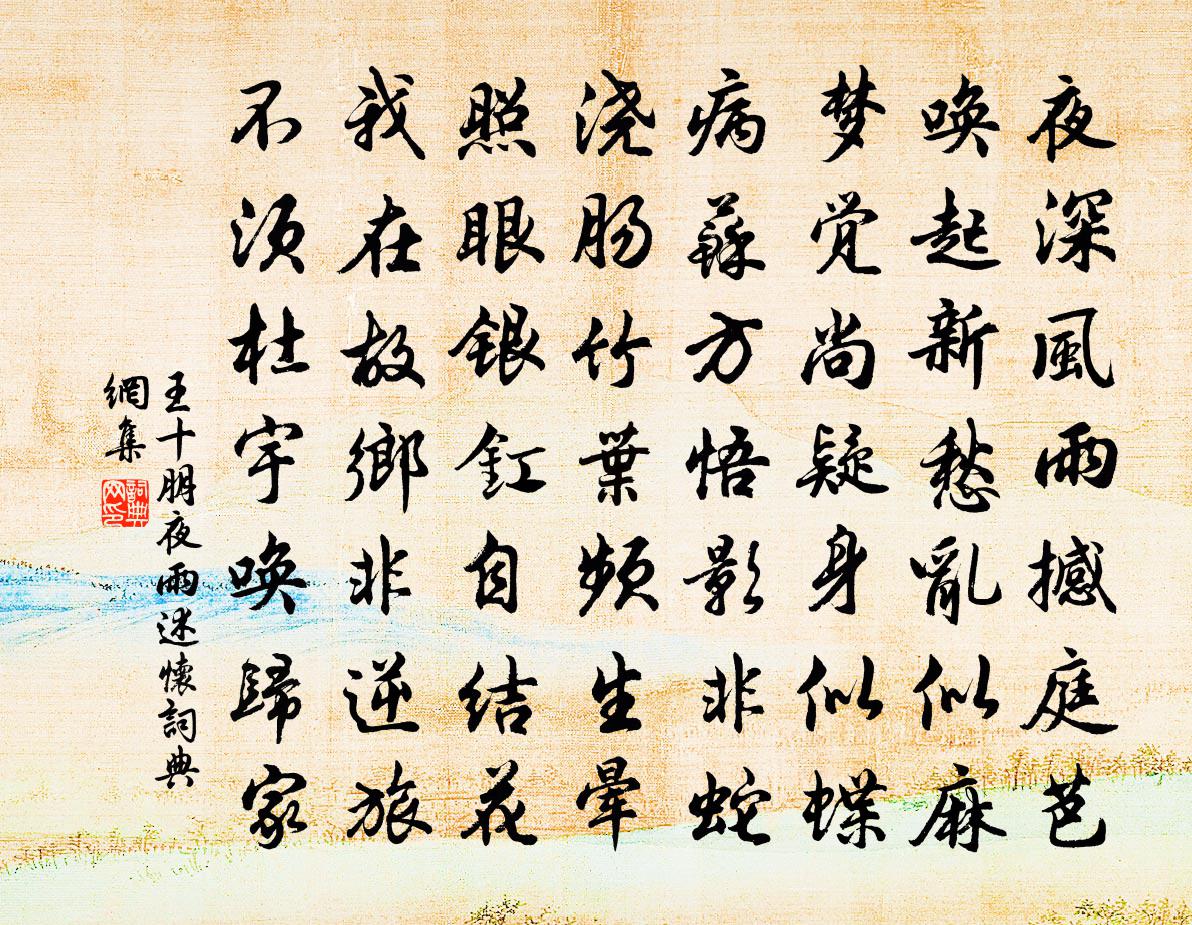 夜深風雨撼庭芭
唤起新愁亂似麻
梦觉尚疑身似蝶
病蘇方悟影非蛇
浇肠竹葉频生暈
照眼銀釭自结花
我在故鄉非逆旅
不须杜宇唤歸家
王十朋夜雨述懷詞典
網集
詞典网印